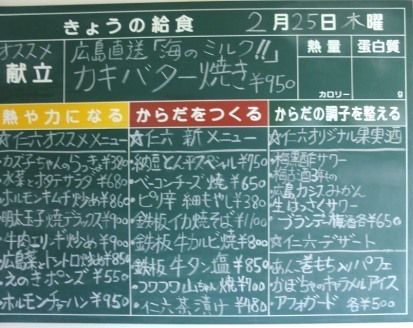 きょうの給食 2月25日木曜
オススメ
献立
広島直送「海のミルク!!」
カキバター焼き ¥950
熱量 蛋白質
カロリー g
熱や力になる
☆仁六オススメメニュー
・カズチャんのらっきょ ¥380
・水菜とホタテサラダ ¥680
・ホルモンキムチ炒め ¥860
・明太玉焼デラックス ¥900
・牛肉ニンニク炒め ¥900
・広島菜とトントロ炒め ¥850
・えのきポンズ ¥550
・ホルモンチャーハン ¥950
からだをつくる
☆仁六 新メニュー
・納豆とん平スペシャル ¥750
・ベーコンチーズ焼 ¥650
・ピリ辛細もやし ¥380
・鉄板イカ焼そば ¥1100
・鉄板牛カルビ焼 ¥800
・鉄板牛タン塩 ¥850
・フワフワ山ちゃん焼 ¥700
・仁六茶漬け ¥480
からだの調子を整える
☆仁六オリジナル果実酒
・梅黒酢サワー
・梅古酒3年
・広島カシスみかん
・生しぼっさくサワー
・ブランデー梅酒 各¥650
☆仁六デザート
・あん巻もちパフェ
・かぼちゃのキャラメルアイス
・アフォガード 各¥500